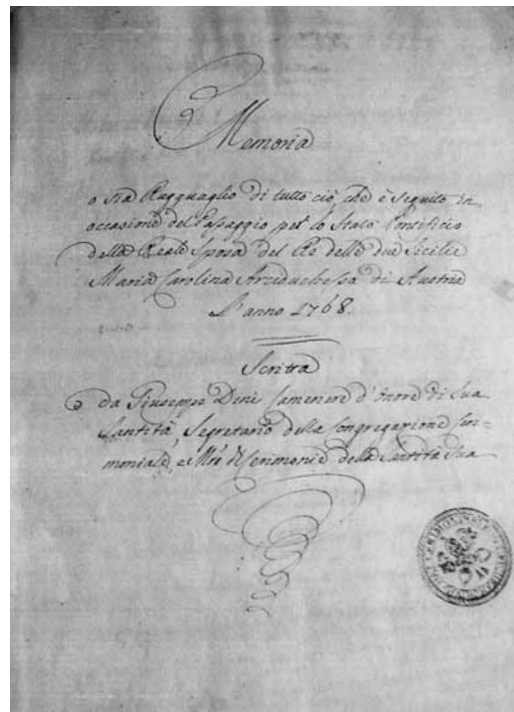 Memoria
o sia Ragguaglio di tutto ciò, che è seguito in
occasione del Passaggio per lo Stato Pontificio
della Reale Sposa del Re delle due Sicilie
Maria Carolina Arciduchessa di Austria
L'anno 1768.
Scritta
da Giuseppe Dini Cameriere d'Onore di Sua
Santità, Segretario della Congregazione Ceri=
moniale, e Mro di Cerimonie della Santità Sua